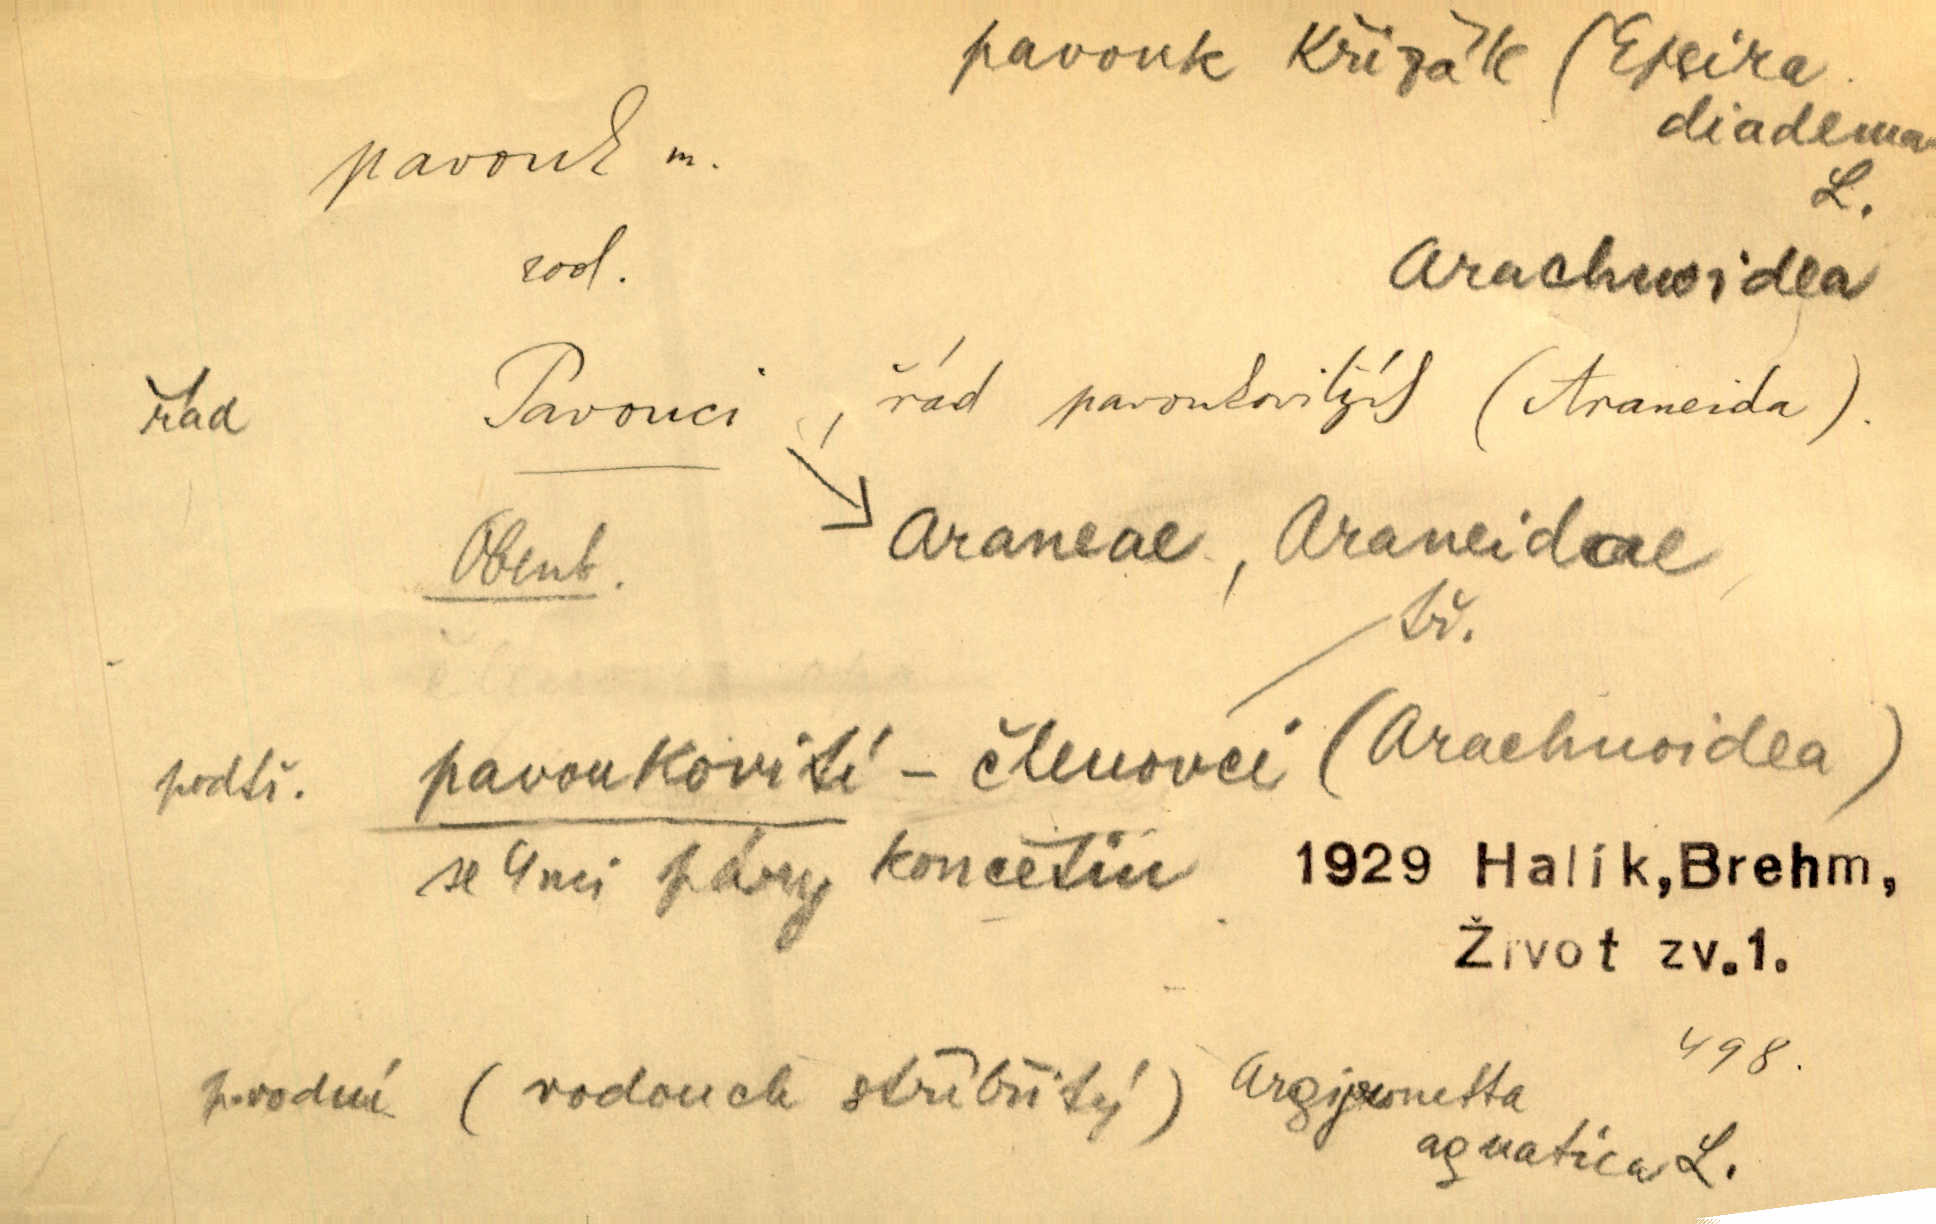 pavouk Křižák (Epeira
diadema
L.
pavouk m.
zool.
Arachnoidea
řád Pavouci, řád pavoukovitých (Araneida).
Obenb. Araneae, Araneidae
tř.
podtř. pavoukovití - členovci (Arachnoidea)
se 4mi páry končetin
1929 Halík,Brehm,
Život zv.1.
498.
p.vodní (vodouch stříbřitý) Argyronetta
aquatica L.